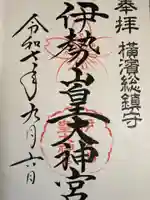 奉拝
横濱総鎮守
伊勢山皇大神宮
令和七年九月六日